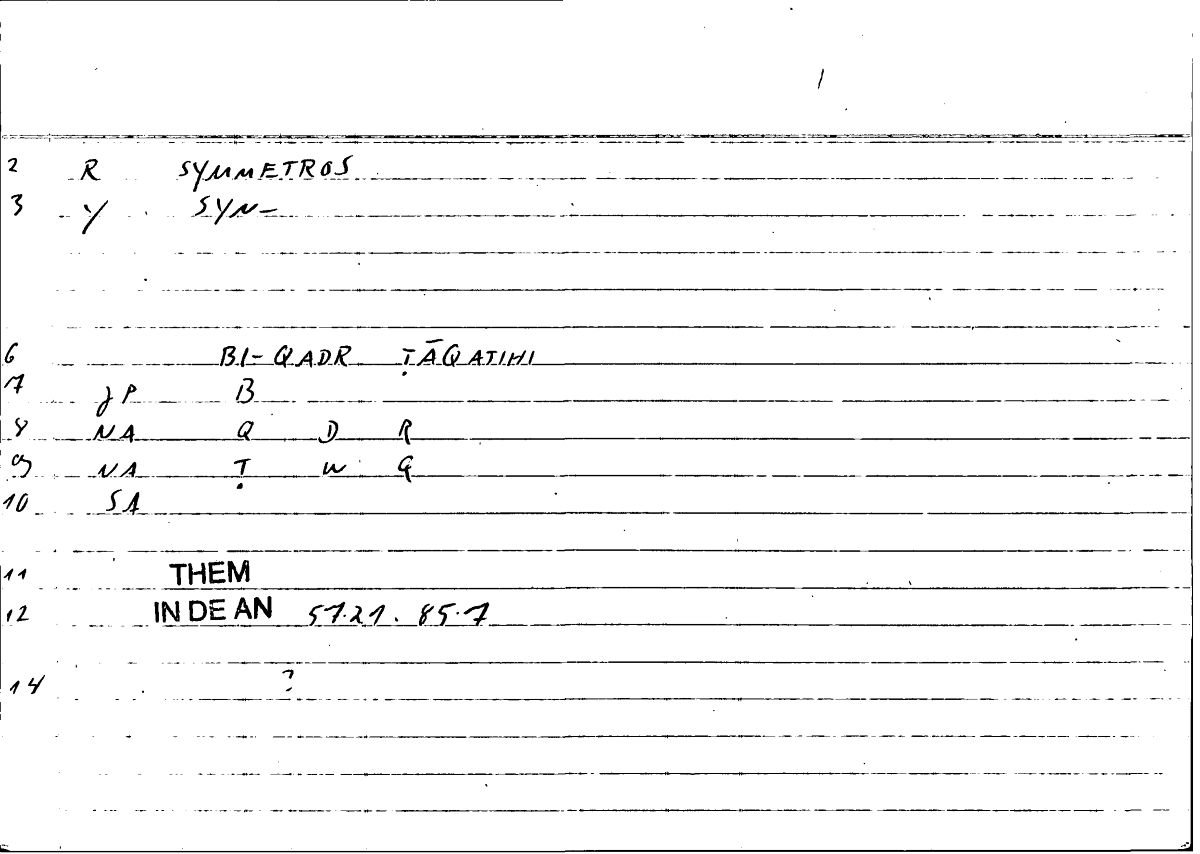 1
2 R SYMMETROS
3 Y SYN-
6 BI-QADR ṬĀQATIHI
7 JP B
8 NA Q D R
9 NA Ṭ W Q
10 SA
11 THEM
12 IN DE AN 57.21. 85.7
14 ?